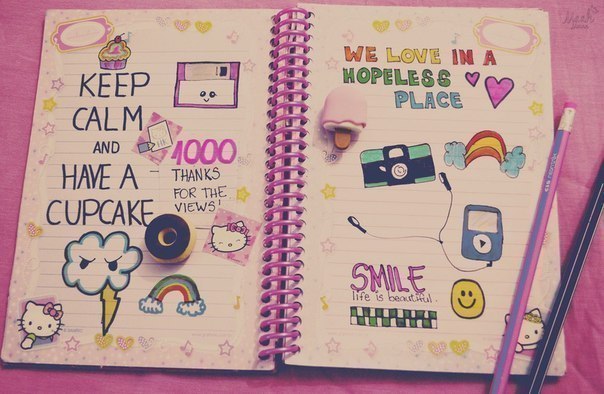 KEEP
CALM
AND
HAVE A
CUPCAKE
1000
THANKS
FOR THE
VIEWS!
WE LOVE IN A
HOPELESS
PLACE
SMILE
life is beautiful.